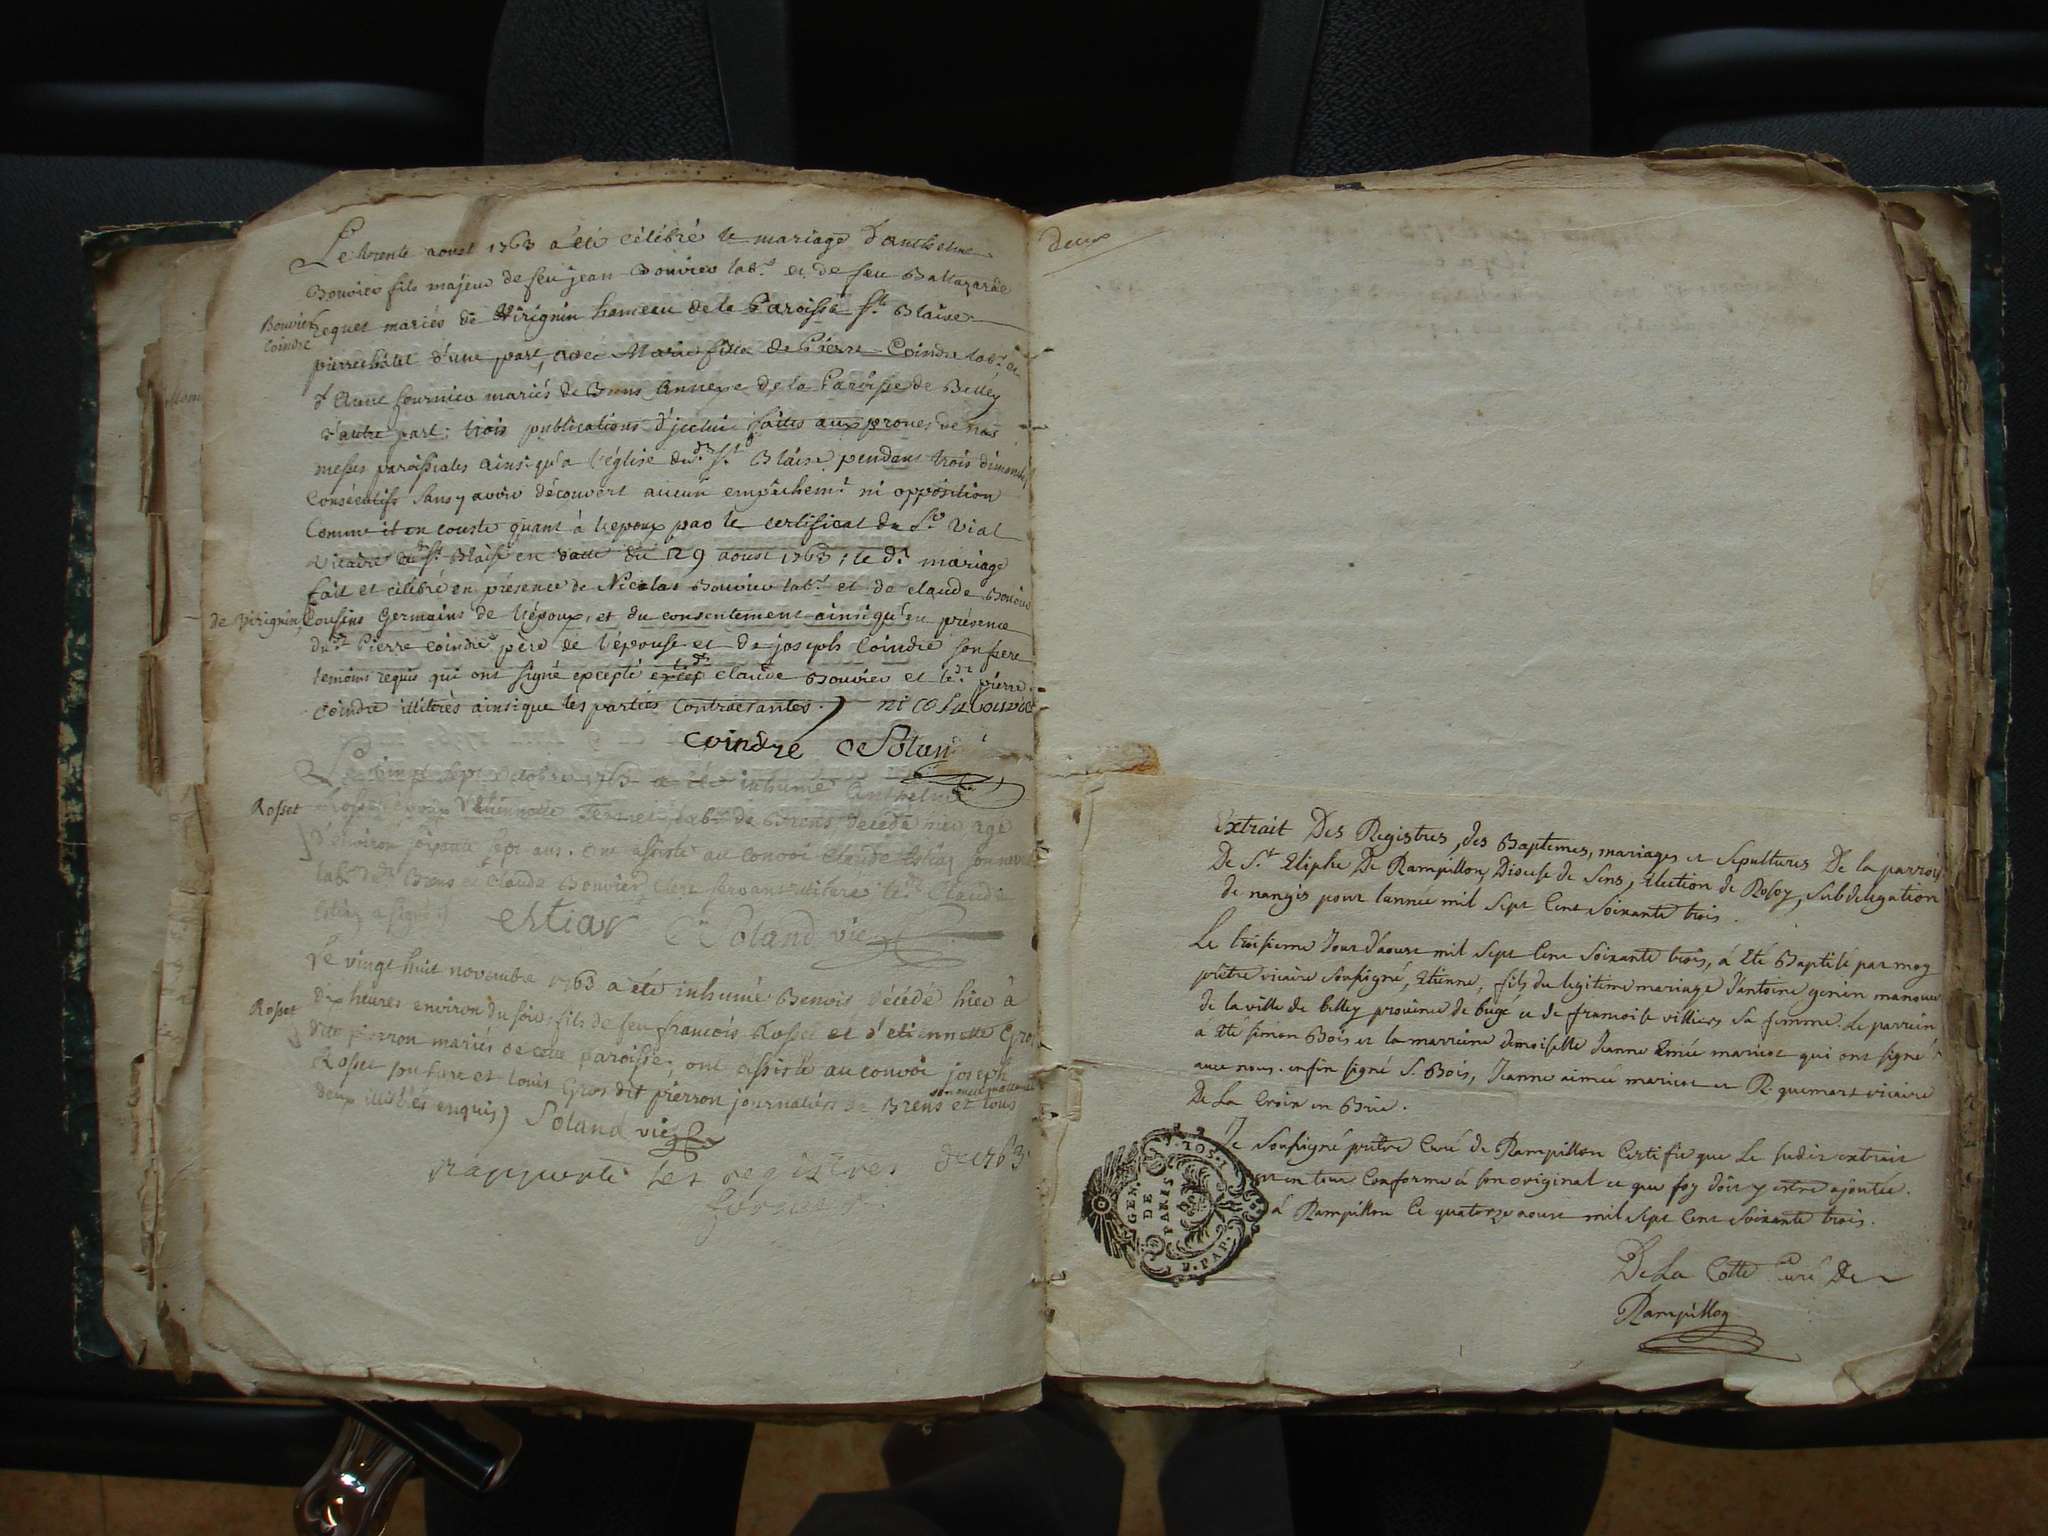 Le trente aoust 1763 a été célébré le mariage d'anthelme
Bouvier fils majeur de feu jean Bouvier lab.r et de feu Baltazarde
Bouvier
Coindre
Jequet mariés de Virignin hameau de la Paroisse St. Blaise
pierrechâtel d'une part, avec Marie fille de Pierre Coindre lab.r et
d'Anne fournier mariés de Brens Annexe de la Paroisse de Belley
d'autre part; trois publications d'jcelui faites aux prones de nos
messes paroissiales ainsi qu'a l'église dud.t St. Blaise pendant trois dimanches
Consécutifs sans y avoir découvert aucun empêchem.t ni opposition
Comme il en conste quant à l'epoux par le certificat du Sr. Vial
vicaire dud.t St. Blaise en datte du 29 aoust 1763; le d.t mariage
fait et célébré en présence de Nicolas Bouvier lab.r et de claude Bouvier
de Virignin, Cousins Germains de l'époux, et du consentement ainsi qu'en présence
dud.t Pierre coindre père de l'épouse et de joseph Coindre son frere
temoins requis qui ont signé excepté led.t claude Bouvier et le d.t pierre
Coindre illiterés ainsi que les parties Contractantes. nicolas bouvie
coindre C Poland
Le vingt sept octobre 1763 a été inhumé Anthelme
Rosset
Rosset époux d'étiennette Ternier lab.r de Brens, décédé hier agé
d'environ soixante sept ans. ont assisté au convoi Claude Estiar son
lab.r de Brens et Claude Bouvier Clerc servant illiteré le d.t Claude
Estiar a signé
estiar C Poland vic
Le vingt huit novembre 1763 a été inhumé Benoit décédé hier à
Rosset
dix heures environ du soir, fils de feu francois Rosset et d'etiennette Gros
ditte pierron mariés de cette paroisse, ont assisté au convoi joseph
Rosset son frere et louis Gros dit pierron journaliers de Brens et tous
son oncle maternel
deux illitérés enquis) Poland vic
rapporté les registres de 1763
deux
Extrait Des Registres, des Baptemes, mariages et Sepultures De la parrois
De St Eliphe De Rampillon, Diocese de Sens, Election de Rosoy, Subdelegation
de nangis pour lannee mil Sept Cent Soixante trois.
Le troisieme Jour daoust mil Sept Cent Soixante trois, à Eté Baptisé par moy
prêtre vicaire Soussigné, Etienne, fils du legitime mariage d'antoine genin manouvr
de la ville de belley province de bugé et de francoise villiers sa femme. Le parrein
a Eté simon Bois et la marreine demoiselle Jeanne Aimée maricot qui ont signé
avec nous. enfin signé S. Bois, Jeanne aimée maricot et R. quemart vicaire
De La Croix en Brie.
Je Soussigné prêtre Curé de Rampillon Certifie que Le susdit extrait
en tout Conforme à son original ce que foy doit y estre ajoutée.
à Rampillon Ce quatorze aoust mil Sept Cent Soixante trois.
GEN.
DE
PARIS
De La Cotte Curé De
Rampillon